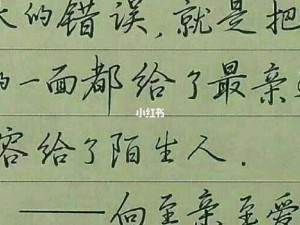 大的错误,就是把
的一面都给了最亲
容给了陌生人.
小红书
——向至亲至爱